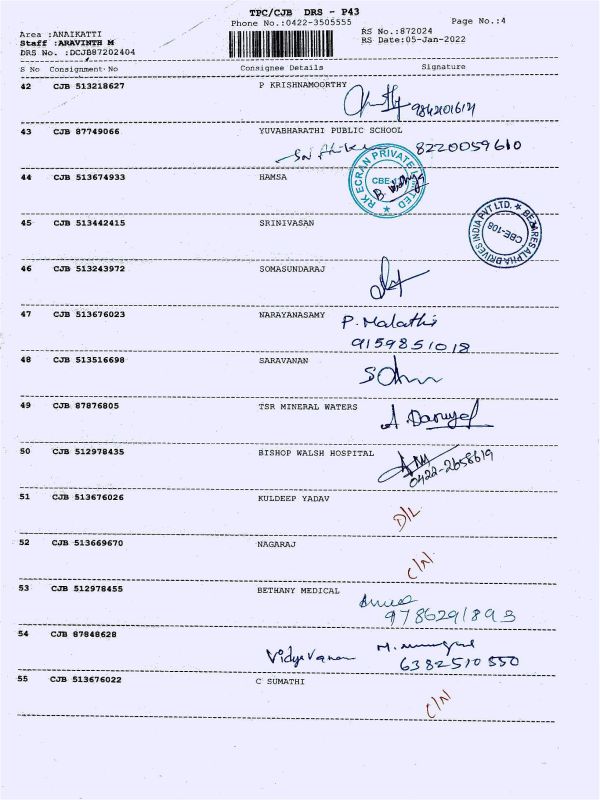 TPC/CJB DRS - P43
Phone No.:0422-3505555
Page No.:4
Area :ANAIKATTI
RS No.:872024
Staff :ARAVINTH M
RS Date:05-Jan-2022
DRS No. :DCJB87202404
S No Consignment No Consignee Details Signature
42 CJB 513218627 P KRISHNAMOORTHY
43 CJB 87749066 YUVABHARATHI PUBLIC SCHOOL
8220059610
44 CJB 513674933 HAMSA
RK ECRAN PRIVATE LIMITED
CBE
45 CJB 513442415 SRINIVASAN
BEZARES ALPHA DRIVES INDIA PVT LTD.
CBE-108
46 CJB 513243972 SOMASUNDARAJ
47 CJB 513676023 NARAYANASAMY
P. Malathi
9159851018
48 CJB 513516698 SARAVANAN
49 CJB 87876805 TSR MINERAL WATERS
50 CJB 512978435 BISHOP WALSH HOSPITAL
0422-2658619
51 CJB 513676026 KULDEEP YADAV
D/L
52 CJB 513669670 NAGARAJ
C/N
53 CJB 512978455 BETHANY MEDICAL
9786291893
54 CJB 87848628
Vidya Vanam
6382510550
55 CJB 513676022 C SUMATHI
C/N